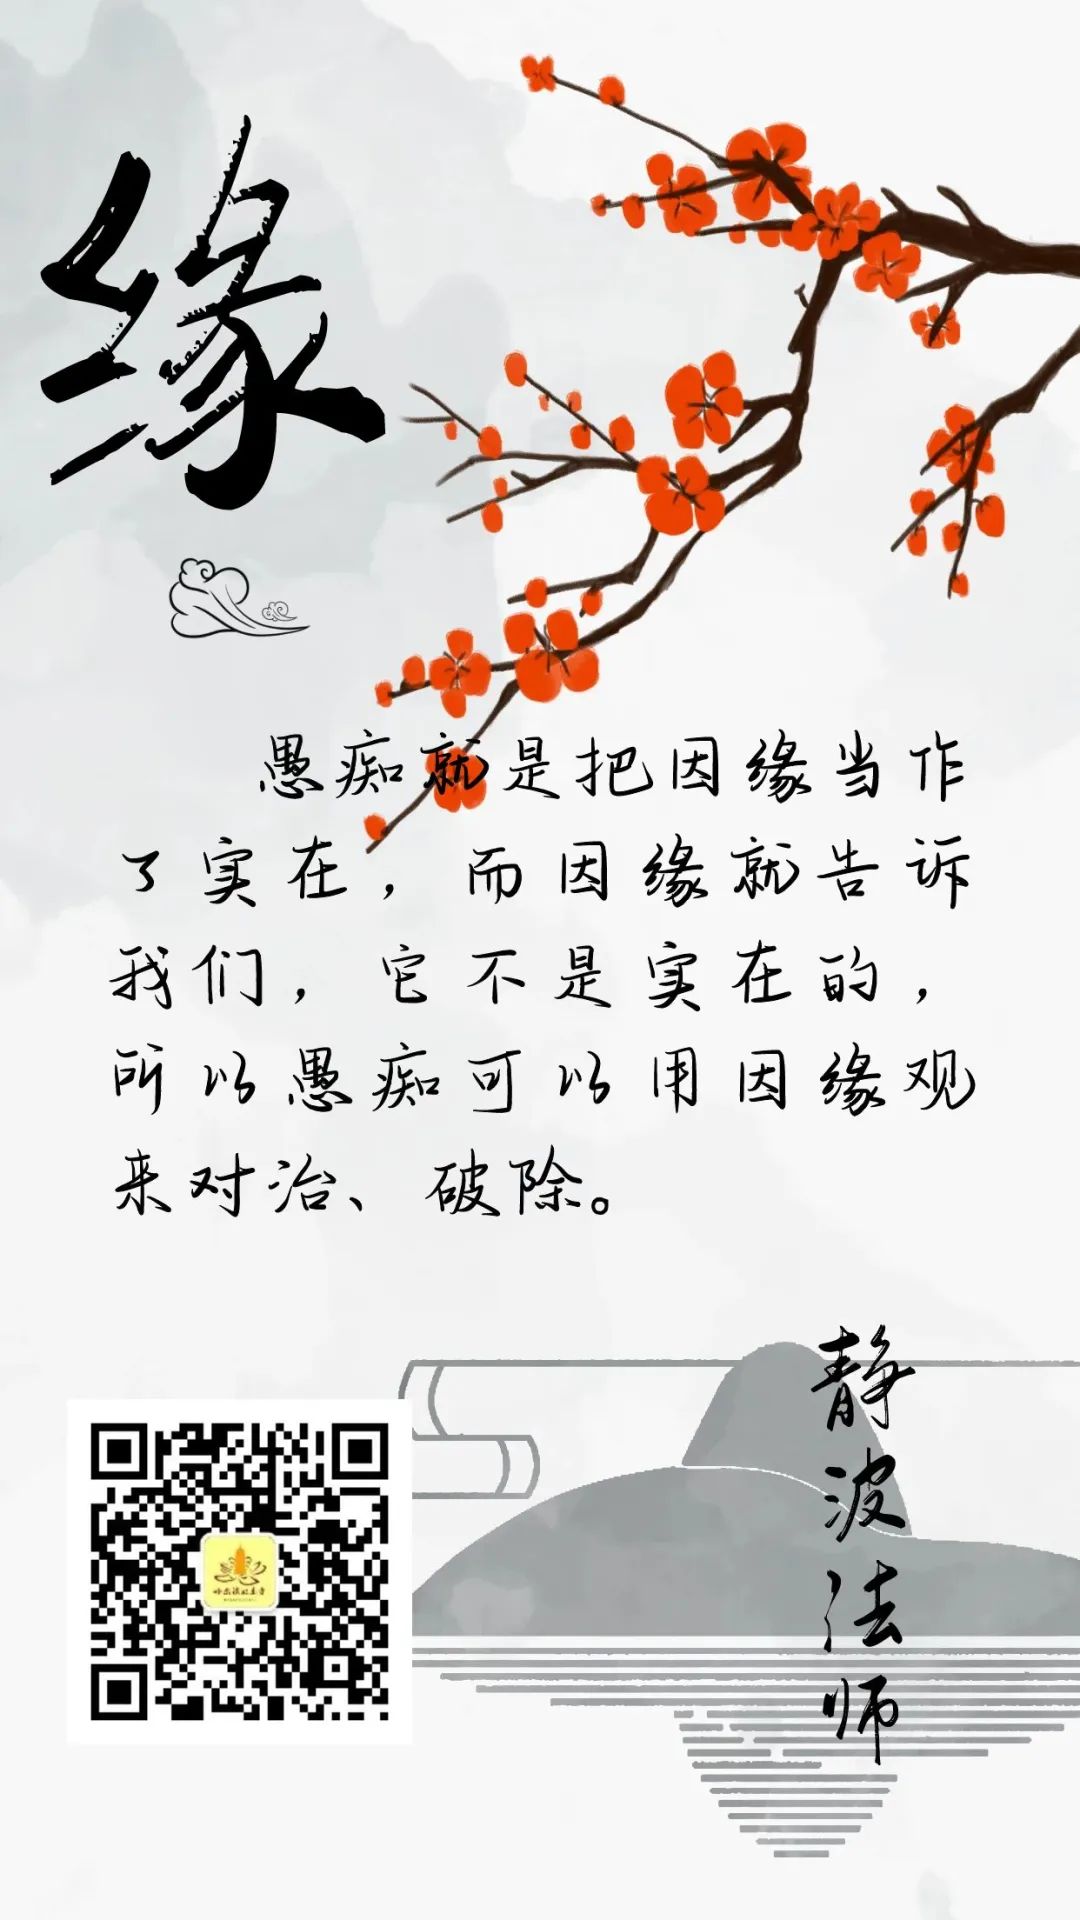 缘
愚痴就是把因缘当作
了实在，而因缘就告诉
我们，它不是实在的，
所以愚痴可以用因缘观
来对治、破除。
静波法师